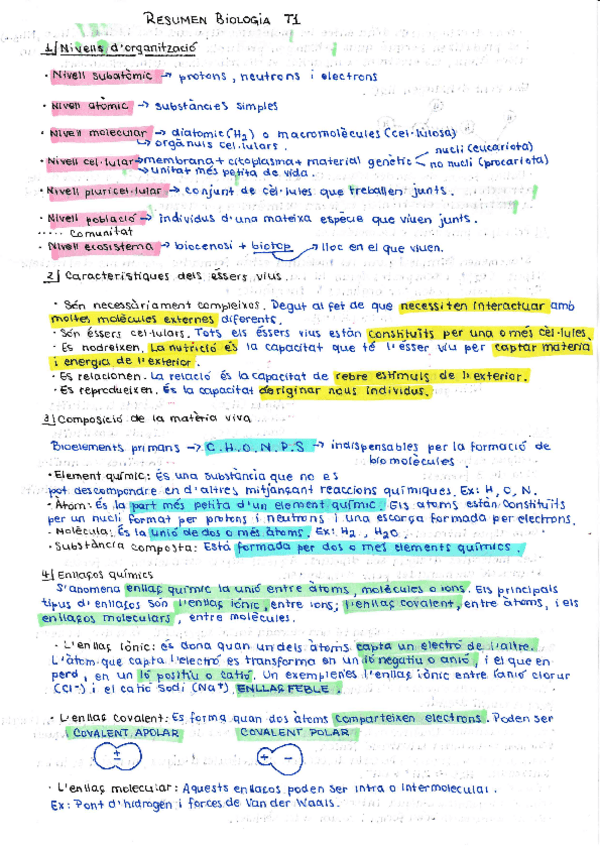 RESUMEN BIOLOGIA T1
1/ Nivells d'organització
· Nivell subatòmic → protons, neutrons i electrons
· Nivell atòmic → substàncies simples
· Nivell molecular → diatomic (H2) o macromolècules (cel·lulosa)
→ orgànuls cel·lulars.
nucli (eucariota)
· Nivell cel·lular → membrana + citoplasma + material genètic
no nucli (procariota)
→ unitat més petita de vida.
· Nivell pluricel·lular → conjunt de cèl·lules que treballen junts.
· Nivell població → individus d'una mateixa espècie que viuen junts.
..... Comunitat
· Nivell ecosistema → biocenosi + biotop → lloc en el que viuen.
2/ Característiques dels éssers vius.
· Són necessàriament complexos. Degut al fet de que necessiten interactuar amb
moltes molècules externes diferents.
· Són éssers cel·lulars. Tots els éssers vius están constituïts per una o més cèl·lules.
· Es nodreixen. La nutrició és la capacitat que té l'ésser viu per captar matèria
i energia de l'exterior.
· Es relacionen. La relació és la capacitat de rebre estímuls de l'exterior.
· Es reprodueixen. És la capacitat d'originar nous individus.
3/ Composició de la matèria viva
Bioelements primaris → C.H.O.N.P.S → indispensables per la formació de
biomolècules.
· Element químic: És una substància que no es
pot descompondre en d'altres mitjançant reaccions químiques. Ex: H, O, N.
· Àtom: És la part més petita d'un element químic. Els atoms están constituïts
per un nucli format per protons i neutrons i una escorça formada per electrons.
· Molècula: És la unió de dos o més àtoms. Ex: H2, H2O
· Substància composta: Està formada per dos o més elements químics.
4/ Enllaços químics
S'anomena enllaç químic la unió entre àtoms, molècules o ions. Els principals
tipus d'enllaços són l'enllaç iònic, entre ions; l'enllaç covalent, entre àtoms, i els
enllaços moleculars, entre molècules.
· L'enllaç iònic: es dona quan un dels àtoms capta un electró de l'altre.
L'àtom que capta l'electró es transforma en un ió negatiu o anió, i el que en
perd, en un ió positiu o catió. Un exemple és l'enllaç iònic entre l'anió clorur
(Cl-) i el catió sodi (Na+). ENLLAÇ FEBLE.
· L'enllaç covalent: Es forma quan dos àtoms comparteixen electrons. Poden ser
COVALENT APOLAR COVALENT POLAR
± + -
· L'enllaç molecular: Aquests enllaços poden ser intra o intermolecular.
Ex: Pont d'hidrogen i forces de Van der Waals.